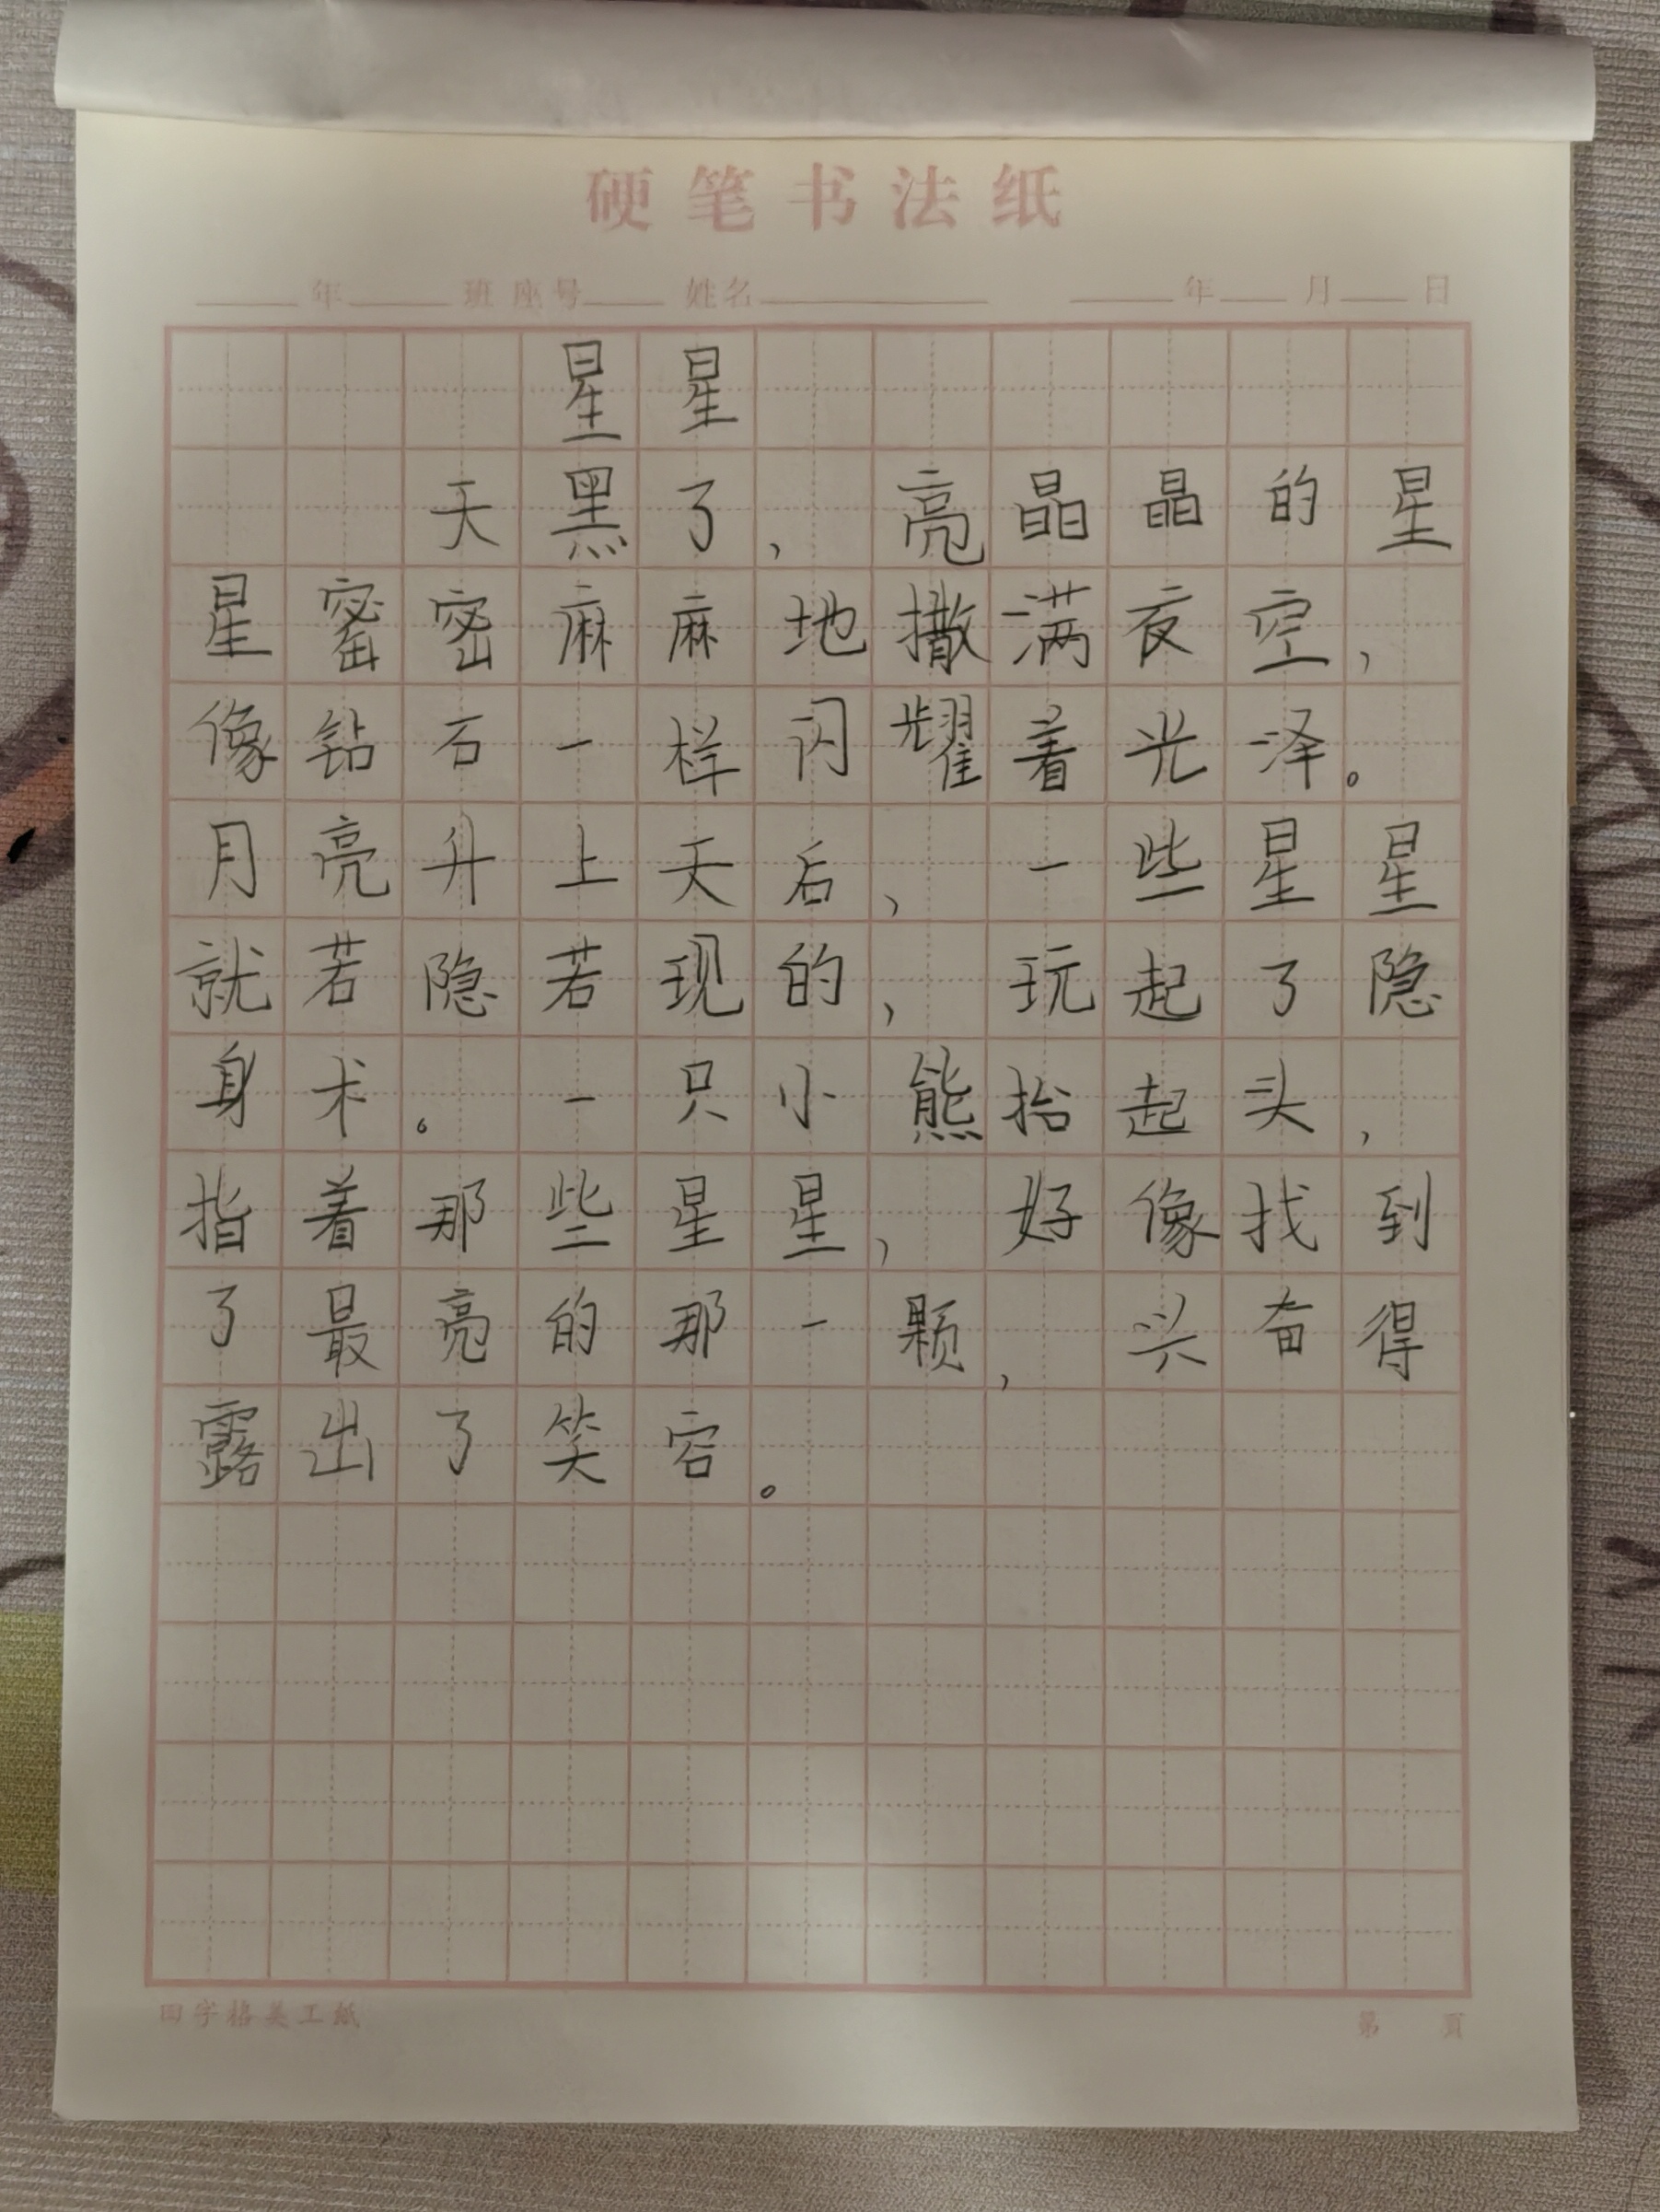 硬笔书法纸
年 班 座号 姓名 年 月 日
星星
天黑了，亮晶晶的星
星密密麻麻地撒满夜空，
像钻石一样闪耀着光泽。
月亮升上天后，一些星星
就若隐若现的，玩起了隐
身术。一只小熊抬起头，
指着那些星星，好像找到
了最亮的那一颗，兴奋得
露出了笑容。
田字格美工纸 第 頁